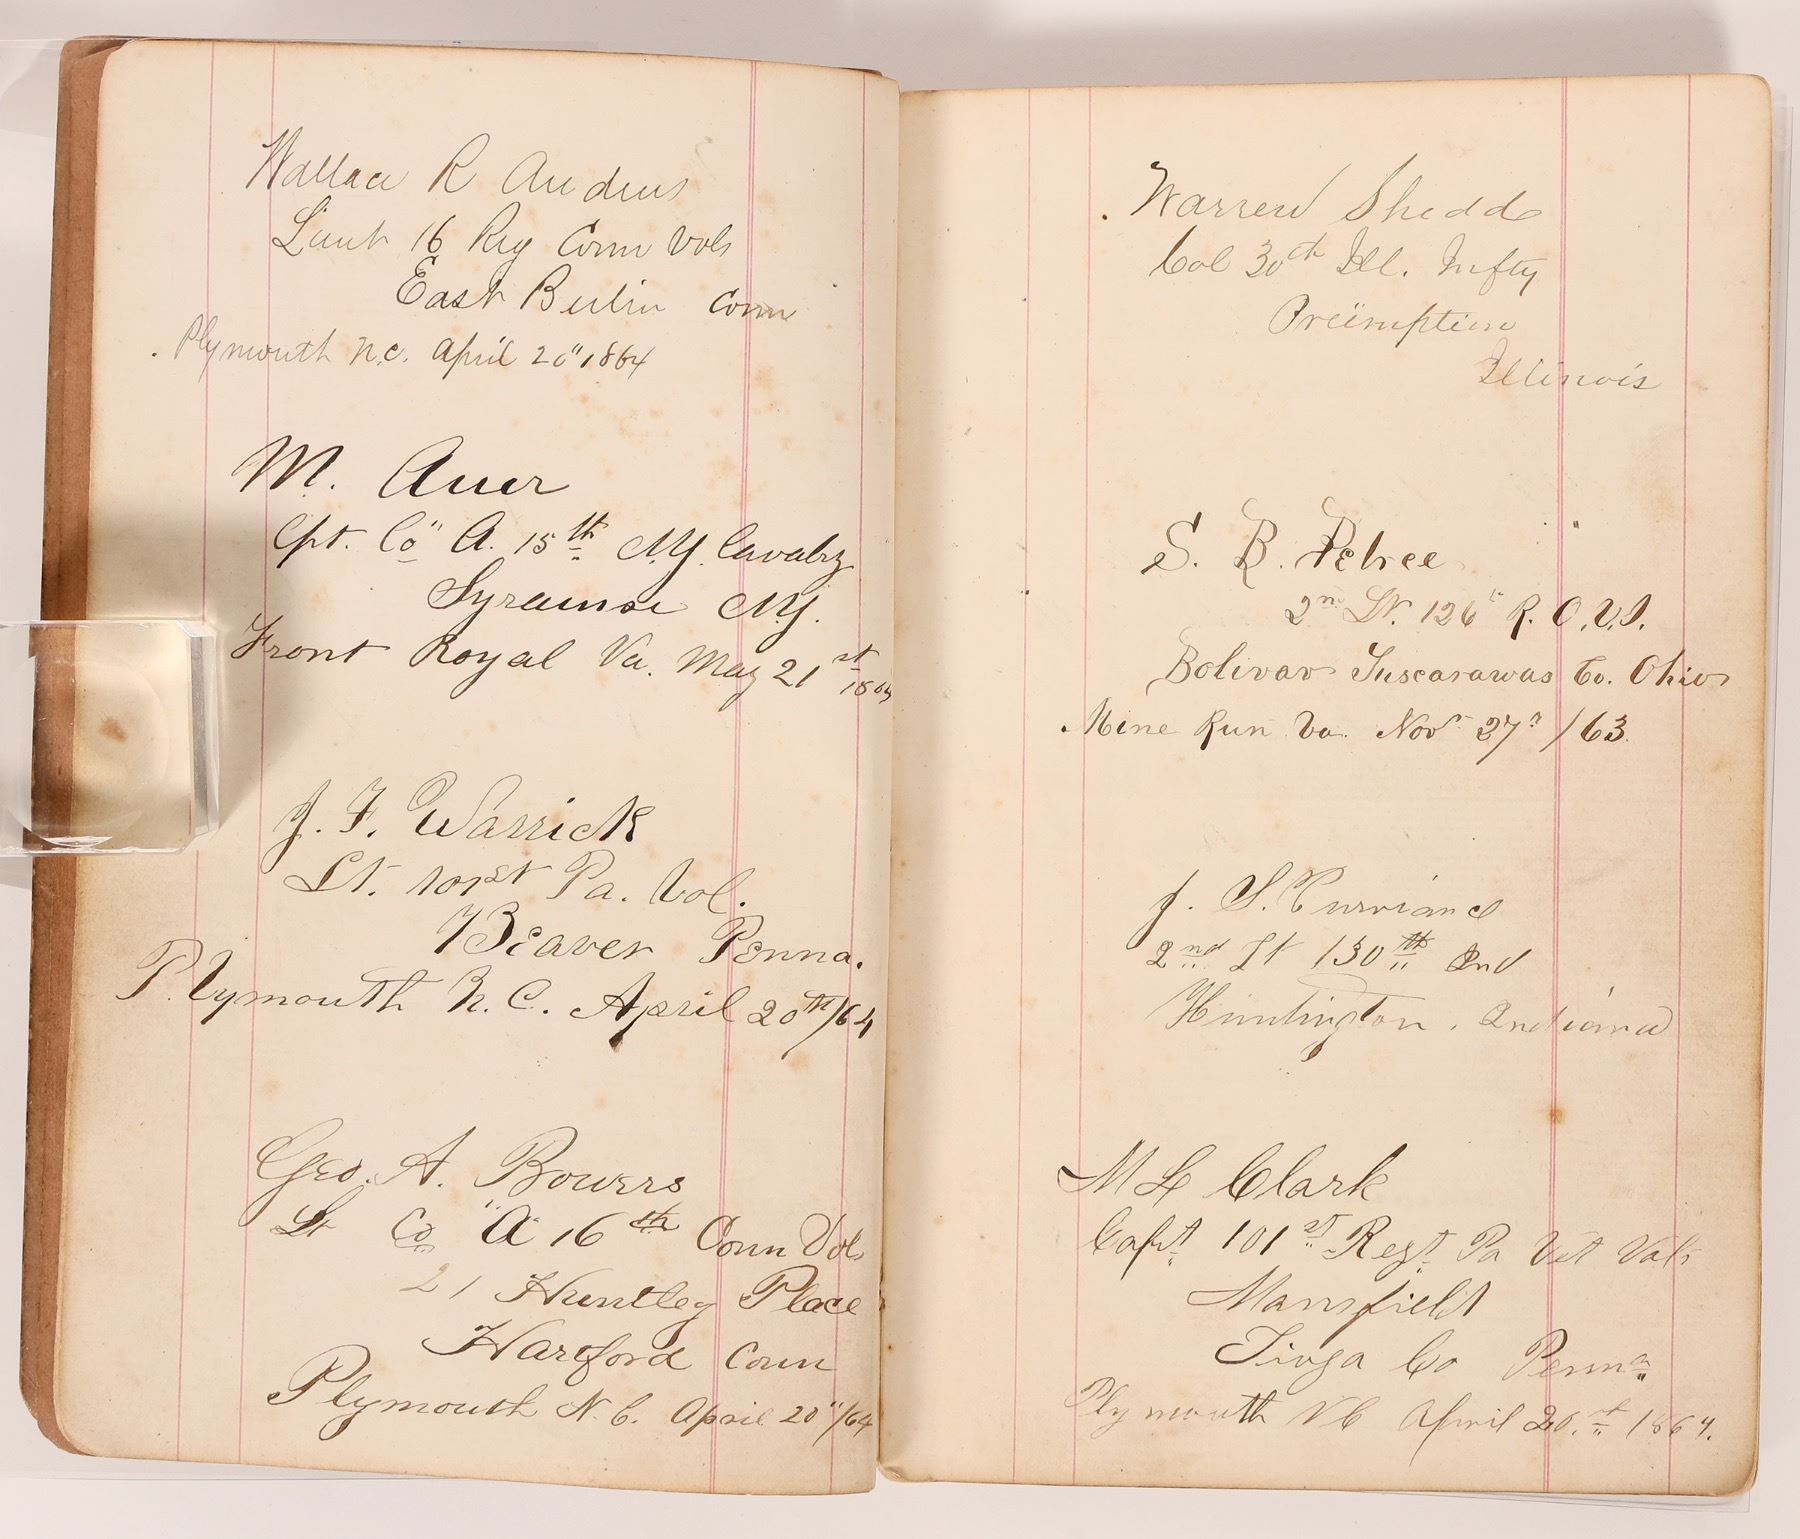 Wallace R Andrus
Lieut 16 Reg Conn Vols
East Berlin Conn
Plymouth N.C. April 20" 1864
M. Auer
Cpt. Co" A. 15th N.Y. Cavalry
Syracuse N.Y.
Front Royal Va. May 21st 1864
J. F. Warrick
Lt. 101st Pa. Vol.
Beaver Penna.
Plymouth N. C. April 20th/64
Geo. A. Bowers
Lt Co "A" 16th Conn Vols
21 Huntley Place
Hartford Conn
Plymouth N. C. April 20"/64
Warren Shedd
Col 30th Ill. Infty
Preümption
Illinois
S. B. Petree
2n Lt. 126" R. O. V. I.
Bolivar Tuscarawas Co. Ohio
Mine Run Va. Nov 27" /63.
J. S. Purviance
2nd Lt 130th Ind
Huntington, Indiana
M L Clark
Capt 101st Regt Pa Vet Vols
Mansfield
Tioga Co Penna
Plymouth N C April 20.st 1864.